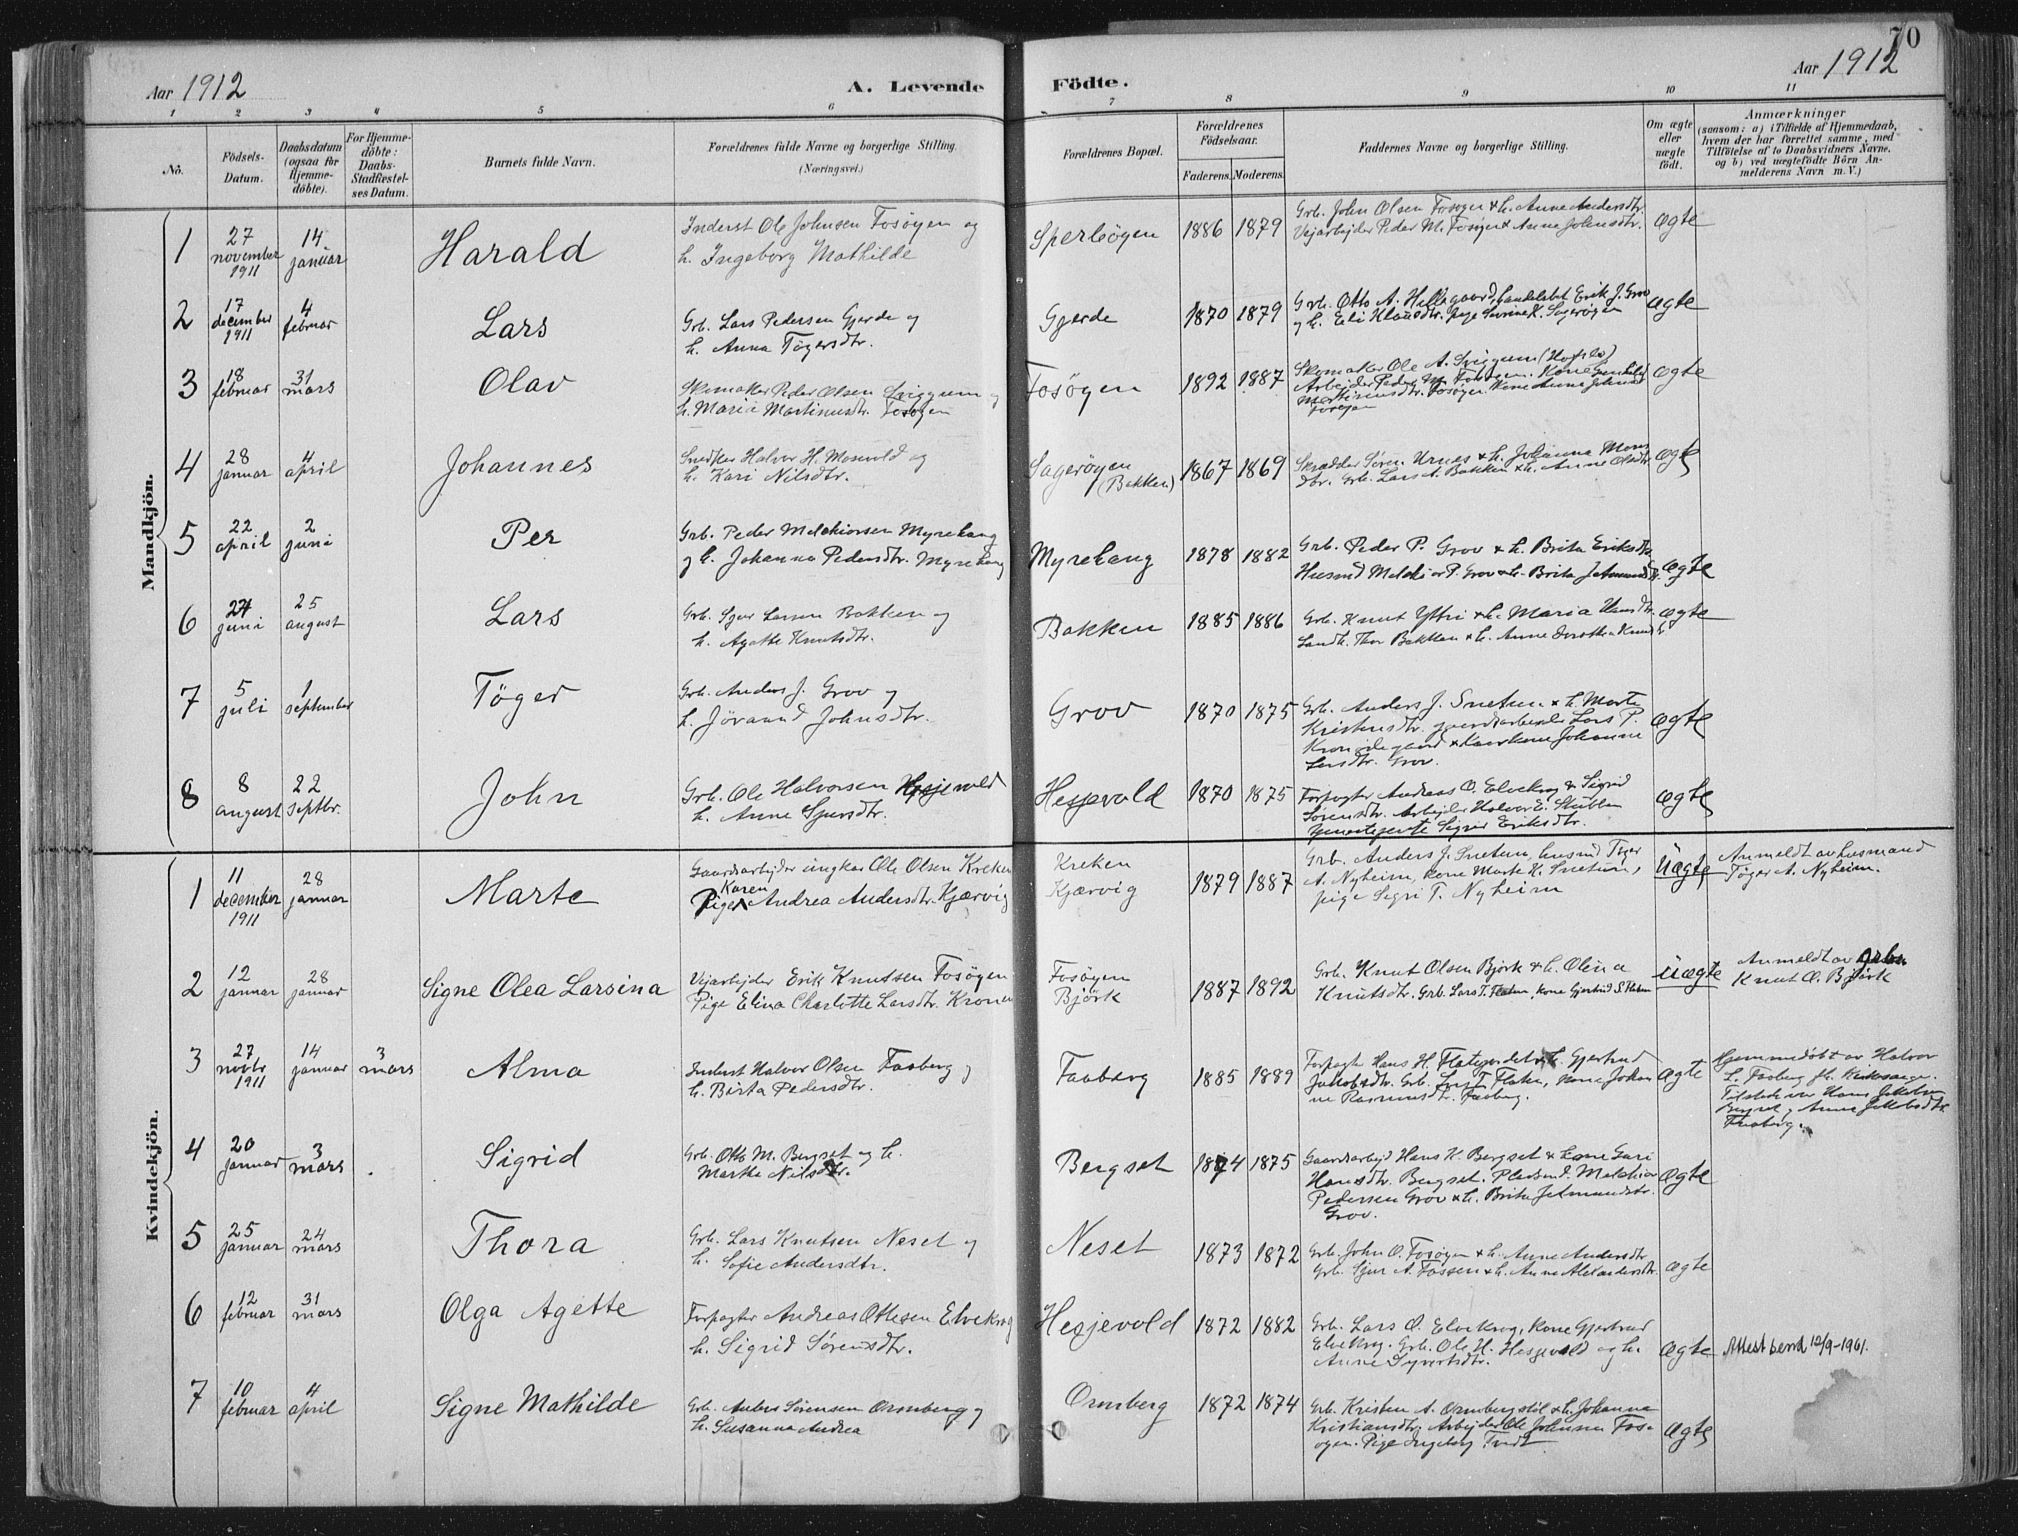 70
Aar 1912
A. Levende Födte.
Aar 1912
1 2 3 4 5 6 7 8 9 10 11
No.
Födsels-Datum.
Daabsdatum (ogsaa for Hjemme-döbte).
For Hjemme-döbte: Daabs-Stadfæstel-ses Datum.
Barnets fulde Navn.
Forældrenes fulde Navne og borgerlige Stilling.
(Næringsvei.)
Forældrenes Bopæl.
Forældrenes Födselsaar.
Faderens. Moderens.
Faddernes Navne og borgerlige Stilling.
Om ægte eller uægte födt.
Anmærkninger
(saasom: a) i Tilfælde af Hjemmedaab, hvem der har forrettet samme, med Tilföielse af to Daabsvidners Navne, og b) ved uægtefödte Börn An-melderens Navn m. V.)
Mandkjön.
1 27 november 1911 14 januar Harald
Inderst Ole Johnsen Fosöyen og
h. Ingeborg Mathilde
Sperleöyen 1886 1879
Grb. John Olsen Fosöyen & h. Anne Andersdtr.
Veiarbejder Peder M. Fosöyen & Anne Johnsdtr.
ægte
2 17 december 1911 4 februar Lars
Grb. Lars Pedersen Gjerde og
h. Anna Tögersdtr.
Gjerde 1870 1879
Grb. Otto A. Hillegaard, Erik J. Grov
og h. Eli Klausdtr. pige K. Sageröyen
ægte
3 18 februar 31 mars Olav
Skomaker Peder Olsen Sviggum og
h. Maria Martinusdtr. Fosöyen
Fosöyen 1892 1887
Skomaker Ole A. Sviggum (Hofslo)
Arbejder Peder M. Fosöyen. Kone
Martinusdtr. Fosöyen. Kone Anna Johnsd
Fosöyen
ægte
4 28 januar 4 april Johannes
Snedker Halvor H. Monvold og
h. Kari Nilsdtr.
Sageröyen (Bakken) 1867 1869
Skrædder Sören Urnes & h. Johanna Mons
dtr. Grb. Lars A. Bakken & h. Anne Olsdtr.
ægte
5 22 april 2 juni Per
Grb. Peder Melchiorsen Myrehaug
og h. Johanna Pedersdtr. Myrehaug
Myrehaug 1878 1882
Grb. Peder P. Grov & h. Brita Eriksdtr.
Husmd Melchior P. Grov & h. Brita
ægte
6 24 juni 25 august Lars
Grb. Sjur Larsen Bakken og
h. Agathe Knutsdtr.
Bakken 1885 1886
Grb. Knut Yttri & h. Maria Hansdtr.
Landh. Thor Bakken & h. Anne Dorothea Knutsdtr.
ægte
7 5 juli 1 september Töger
Grb. Anders J. Grov og
h. Jörand Johnsdtr.
Grov 1870 1875
Grb. Anders J. Snetun & h. Marte
Kristensdtr. gaardsarbeider Lars P.
Kronidegaard & Johanne
Larsdtr. Grov.
ægte
8 8 august 22 septbr. John
Grb. Ole Halvorsen Hesjevold
h. Anne Sjursdtr.
Hesjevold 1870 1875
Forpagter Andreas O. Elvekrog & Sigrid
Sörensdtr. Arbejder Halvor E. Stubben
Sigrid Eriksdtr.
ægte
Kvindekjön.
1 11 december 1911 28 januar Marte
Gaardsarbejder ungkar Ole Olsen Kreken
Pige Karen Andrea Andersdtr. Kjærvig
Kreken
Kjærvig
1879 1887
Grb. Anders J. Snetun, husmd Töger
A. Nyheim, kone Marte K. Snetun,
pige Sigri T. Nyheim
uægte
Anmeldt av husmand
Töger A. Nyheim.
2 12 januar 28 januar Signe Olea Larsina
Vejarbejder Erik Knutsen Fosöyen
Pige Elina Charlotte Larsdtr. Kronen
Fosöyen
Björk
1887 1892
Grb. Knut Olsen Björk & h. Olina
Knutsdtr. Grb. Lars T. Flaten, kone Gjertrud S. Flaten
uægte
Anmeldt av Grbr.
Knut O. Björk
3 27 novbr 1911 14 januar 3 mars Alma
Inderst Halvor Olsen Faaberg og
h. Birta Pedersdtr.
Faaberg 1885 1889
Forpagter Hans H. Flategjerdet & h. Gjertrud
Jakobsdtr. Grb. T. Flaten, kone Johan
ne Rasmusdtr. Faaberg.
ægte
Hjemmedöbt av Halvor
L. Faaberg fh. Kirkesanger.
Tilstede var Hans Jakobsen
Bergset og Anne Jakobsdtr.
Faaberg.
4 20 januar 3 mars Sigrid
Grb. Otto M. Bergset og h.
Marthe Nilsdtr.
Bergset 1874 1875
Gaardsarbejd Hans H. Bergset & kone Gari
Hansdtr. Bergset. Pladsmd. Melchior
Pedersen Grov & h. Brita Jetmundsdtr.
Grov.
ægte
5 25 januar 24 mars Thora
Grb. Lars Knutsen Neset og
h. Sofie Andersdtr.
Neset 1873 1872
Grb. John O. Fosöyen & h. Anne Andersdtr
Grb. Sjur A. Fossen & h. Anne Alexandersdtr.
ægte
6 12 februar 31 mars Olga Agette
Forpagter Andreas Ottesen Elvekrog
h. Sigrid Sörensdtr.
Hesjevold 1872 1882
Grb. Lars O. Elvekrog, kone Gjertrud
Elvekrog. Grb. Ole H. Hesjevold og h.
Anne Syvertsdtr.
ægte
Attest send 12/9-1961.
7 10 februar 4 april Signe Mathilde
Grb. Anders Sörensen Ormberg og
h. Susanna Andrea
Ormberg 1872 1874
Grb. Kristen A. Ormbergstöl & h. Johanna
Kristiansdtr. Arbejder Ole Johnsen Fos-
öyen. Pige Ingeborg Tvedt
ægte